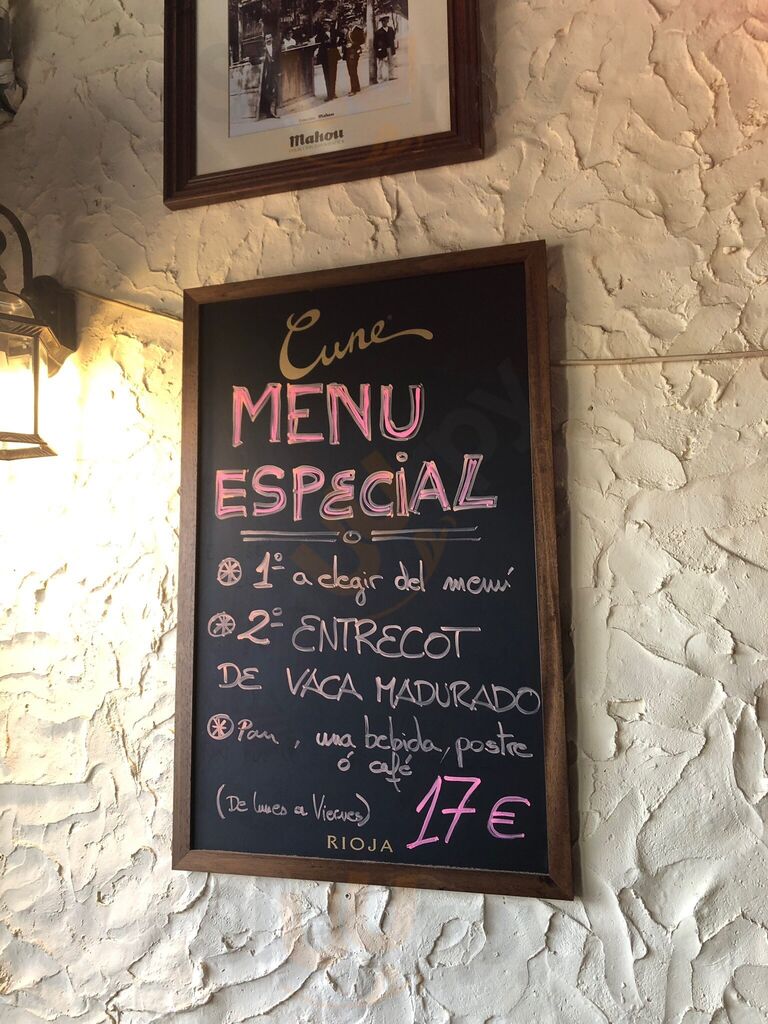 Mahou
Cune
MENU
ESPECIAL
1º a elegir del menú
2º ENTRECOT
DE VACA MADURADO
Pan, una bebida, postre
ó café
(De lunes a Viernes) 17€
RIOJA